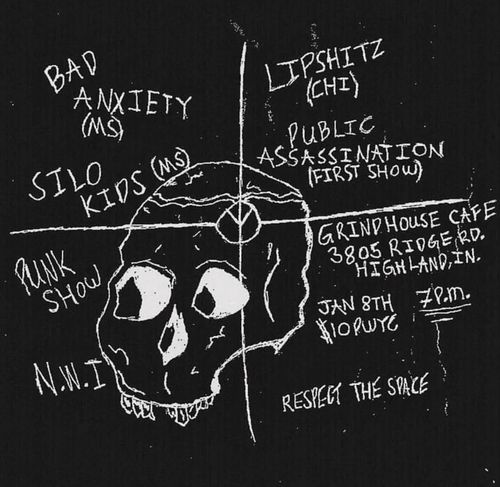 BAD
ANXIETY
(MS)
SILO
KIDS (MS)
PUNK
SHOW
N.W.I
LIPSHITZ
(CHI)
PUBLIC
ASSASSINATION
(FIRST SHOW)
GRINDHOUSE CAFE
3805 RIDGE RD.
HIGHLAND, IN.
JAN 8TH 7P.M.
$10 PWYC
RESPECT THE SPACE